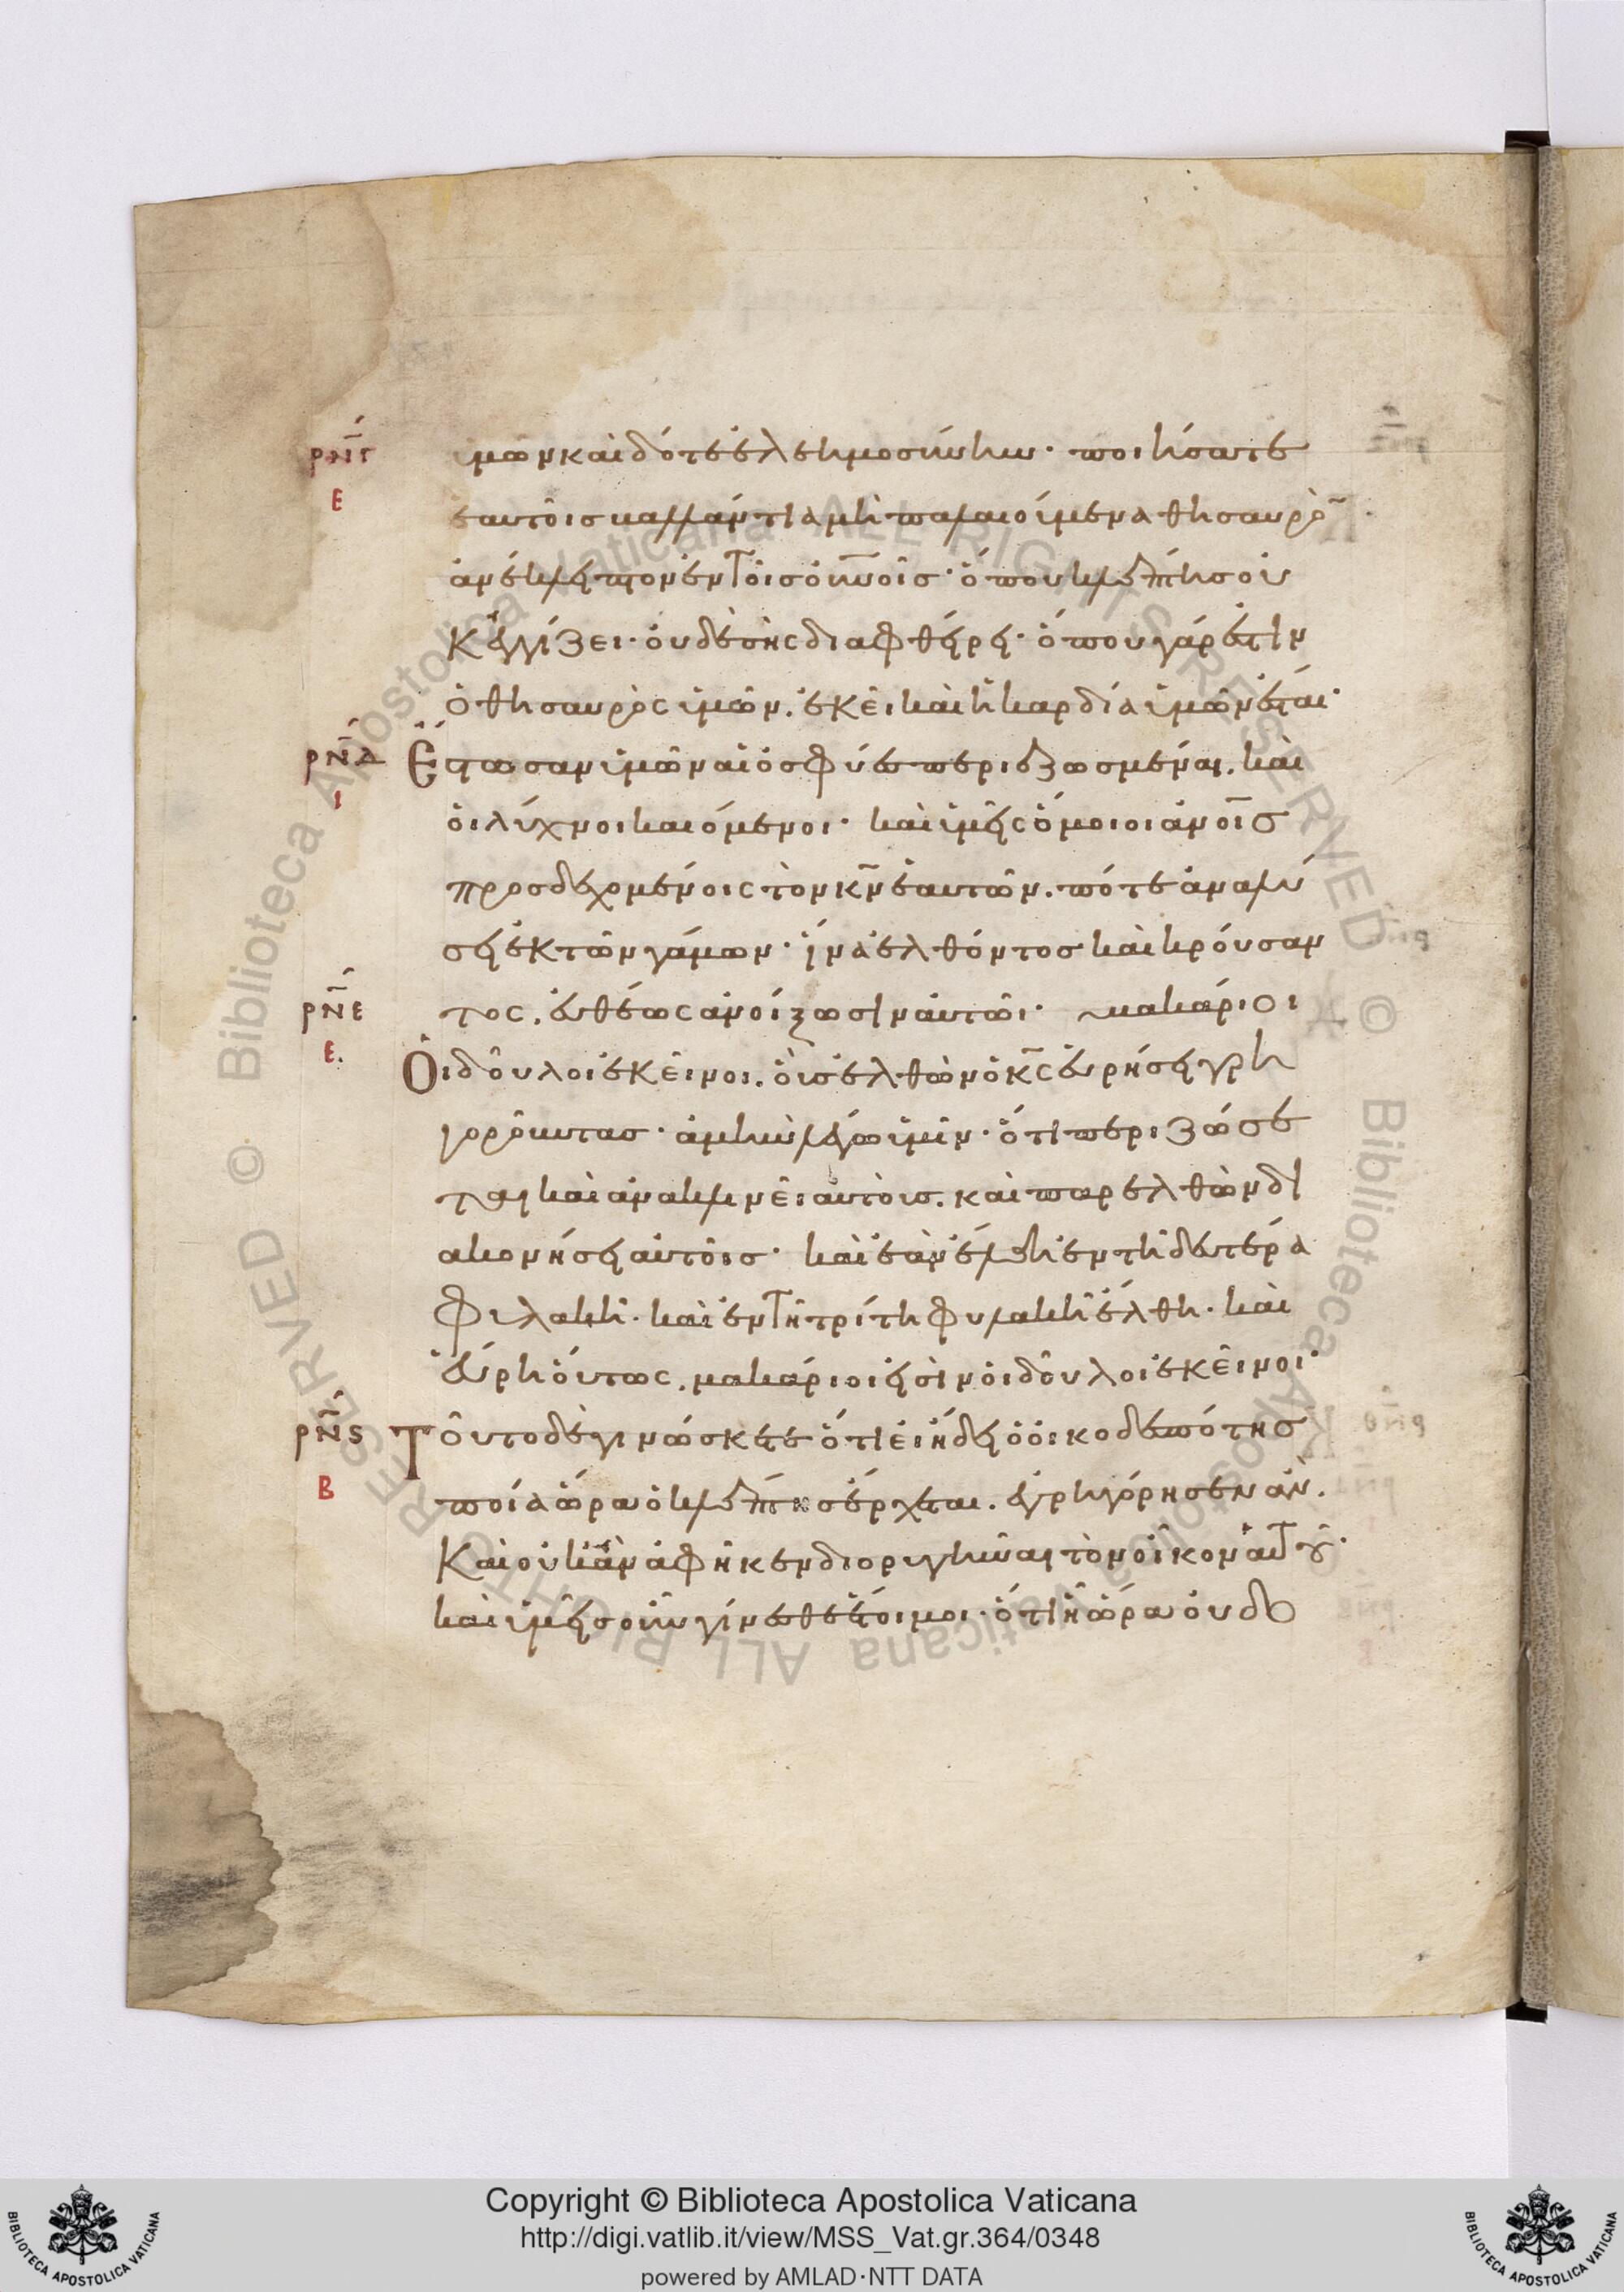 ρν̅γ
ὑμῶν καὶ δότε ἐλεημοσύνην· ποιήσατε
Ε
ἑαυτοῖσ βαλλάντια μὴ παλαιούμενα θησαυρὸ̅
ἀνέκλειπτον ἐν τοῖσ οὐνοῖσ· ὅπου κλέπτησ οὐ
κ ἐγγίζει· οὐδὲ σὴς διαφθείρει· ὅπου γάρ ἐστιν
ὁ θησαυρὸς ὑμῶν. ἐκεῖ καὶ ἡ καρδία ὑμῶν ἔσται·
ρν̅δ
Ἔστωσαν ὑμῶν αἱ ὀσφύες περιεζωσμέναι. καὶ
Ι
οἱ λύχνοι καιόμενοι· καὶ ὑμεῖς ὅμοιοι ἀνοῖ̅σ
προσδεχομένοις τὸν κ̅ν ἑαυτῶν. πότε ἀναλύ
σει ἐκ τῶν γάμων· ἵνα ἐλθόντοσ καὶ κρούσαν
ρν̅ε
τος. εὐθέως ἀνοίξωσιν αὐτῶι· μακάριοι
Ε.
Οἱ δοῦλοι ἐκεῖνοι. οὓσ ἐλθὼν ὁ κ̅ς εὑρήσει γρη
γοροῦντασ· ἀμὴν λέγω ὑμῖν· ὅτι περιζώσε
ται καὶ ἀνακλινεῖ αὐτοὺσ. καὶ παρελθὼν δι
ακονήσει αὐτοῖσ· καὶ ἐὰν ἔλθη ἐν τῆ δευτέρα
φιλακῆ· καὶ ἐν τῆ τρίτη φυλακῆ ἔλθη· καὶ
εὕρη οὕτως. μακάριοι εἰσὶν οἱ δοῦλοι ἐκεῖνοι·
ρν̅ς
Τοῦτο δὲ γινώσκετε ὅτι εἰ ἤδει ὁ οἰκοδεσπότησ
Β
ποία ὥρα ὁ κλέπτησ ἔρχεται. ἐγρηγόρησεν ἂν.
Καὶ οὐκ ἂν ἀφῆκεν διορυγῆναι τὸν οἶκον αὐτοῦ·
καὶ ὑμεῖσ οὖν γίνεσθε ἕτοιμοι· ὅτι ἡ ὥρα οὐ δο
Copyright © Biblioteca Apostolica Vaticana
http://digi.vatlib.it/view/MSS_Vat.gr.364/0348
powered by AMLAD·NTT DATA
BIBLIOTECA APOSTOLICA VATICANA
BIBLIOTECA APOSTOLICA VATICANA
© Biblioteca Apostolica Vaticana ALL RIGHTS RESERVED
© Biblioteca Apostolica Vaticana ALL RIGHTS RESERVED